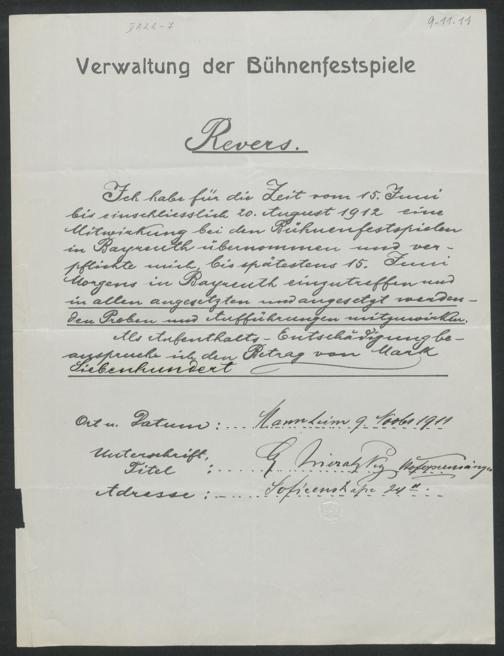 9.11.11
Verwaltung der Bühnenfestspiele
Revers.
Ich habe für die Zeit vom 15. Juni
bis einschliesslich 20. August 1912 eine
Mitwirkung bei den Bühnenfestspielen
in Bayreuth übernommen und ver-
pflichte mich, bis spätestens 15. Juni
Morgens in Bayreuth einzutreffen und
in allen angesetzten und angesetzt werden-
den Proben und Aufführungen mitzuwirken.
Als Aufenthalts-Entschädigung be-
anspruche ich den Betrag von Mark
Siebenhundert
Ort u. Datum: Mannheim 9 Novbr 1911
Unterschrift,
Titel : Hofopernsänger
Adresse: Sofienstraße 24